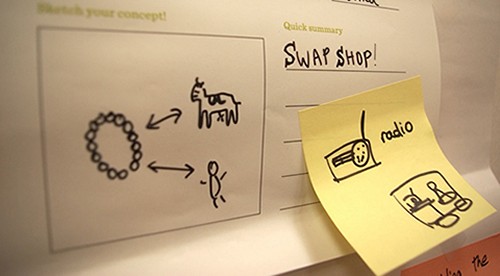 Sketch your concept!
Quick summary
SWAP SHOP!
radio
the